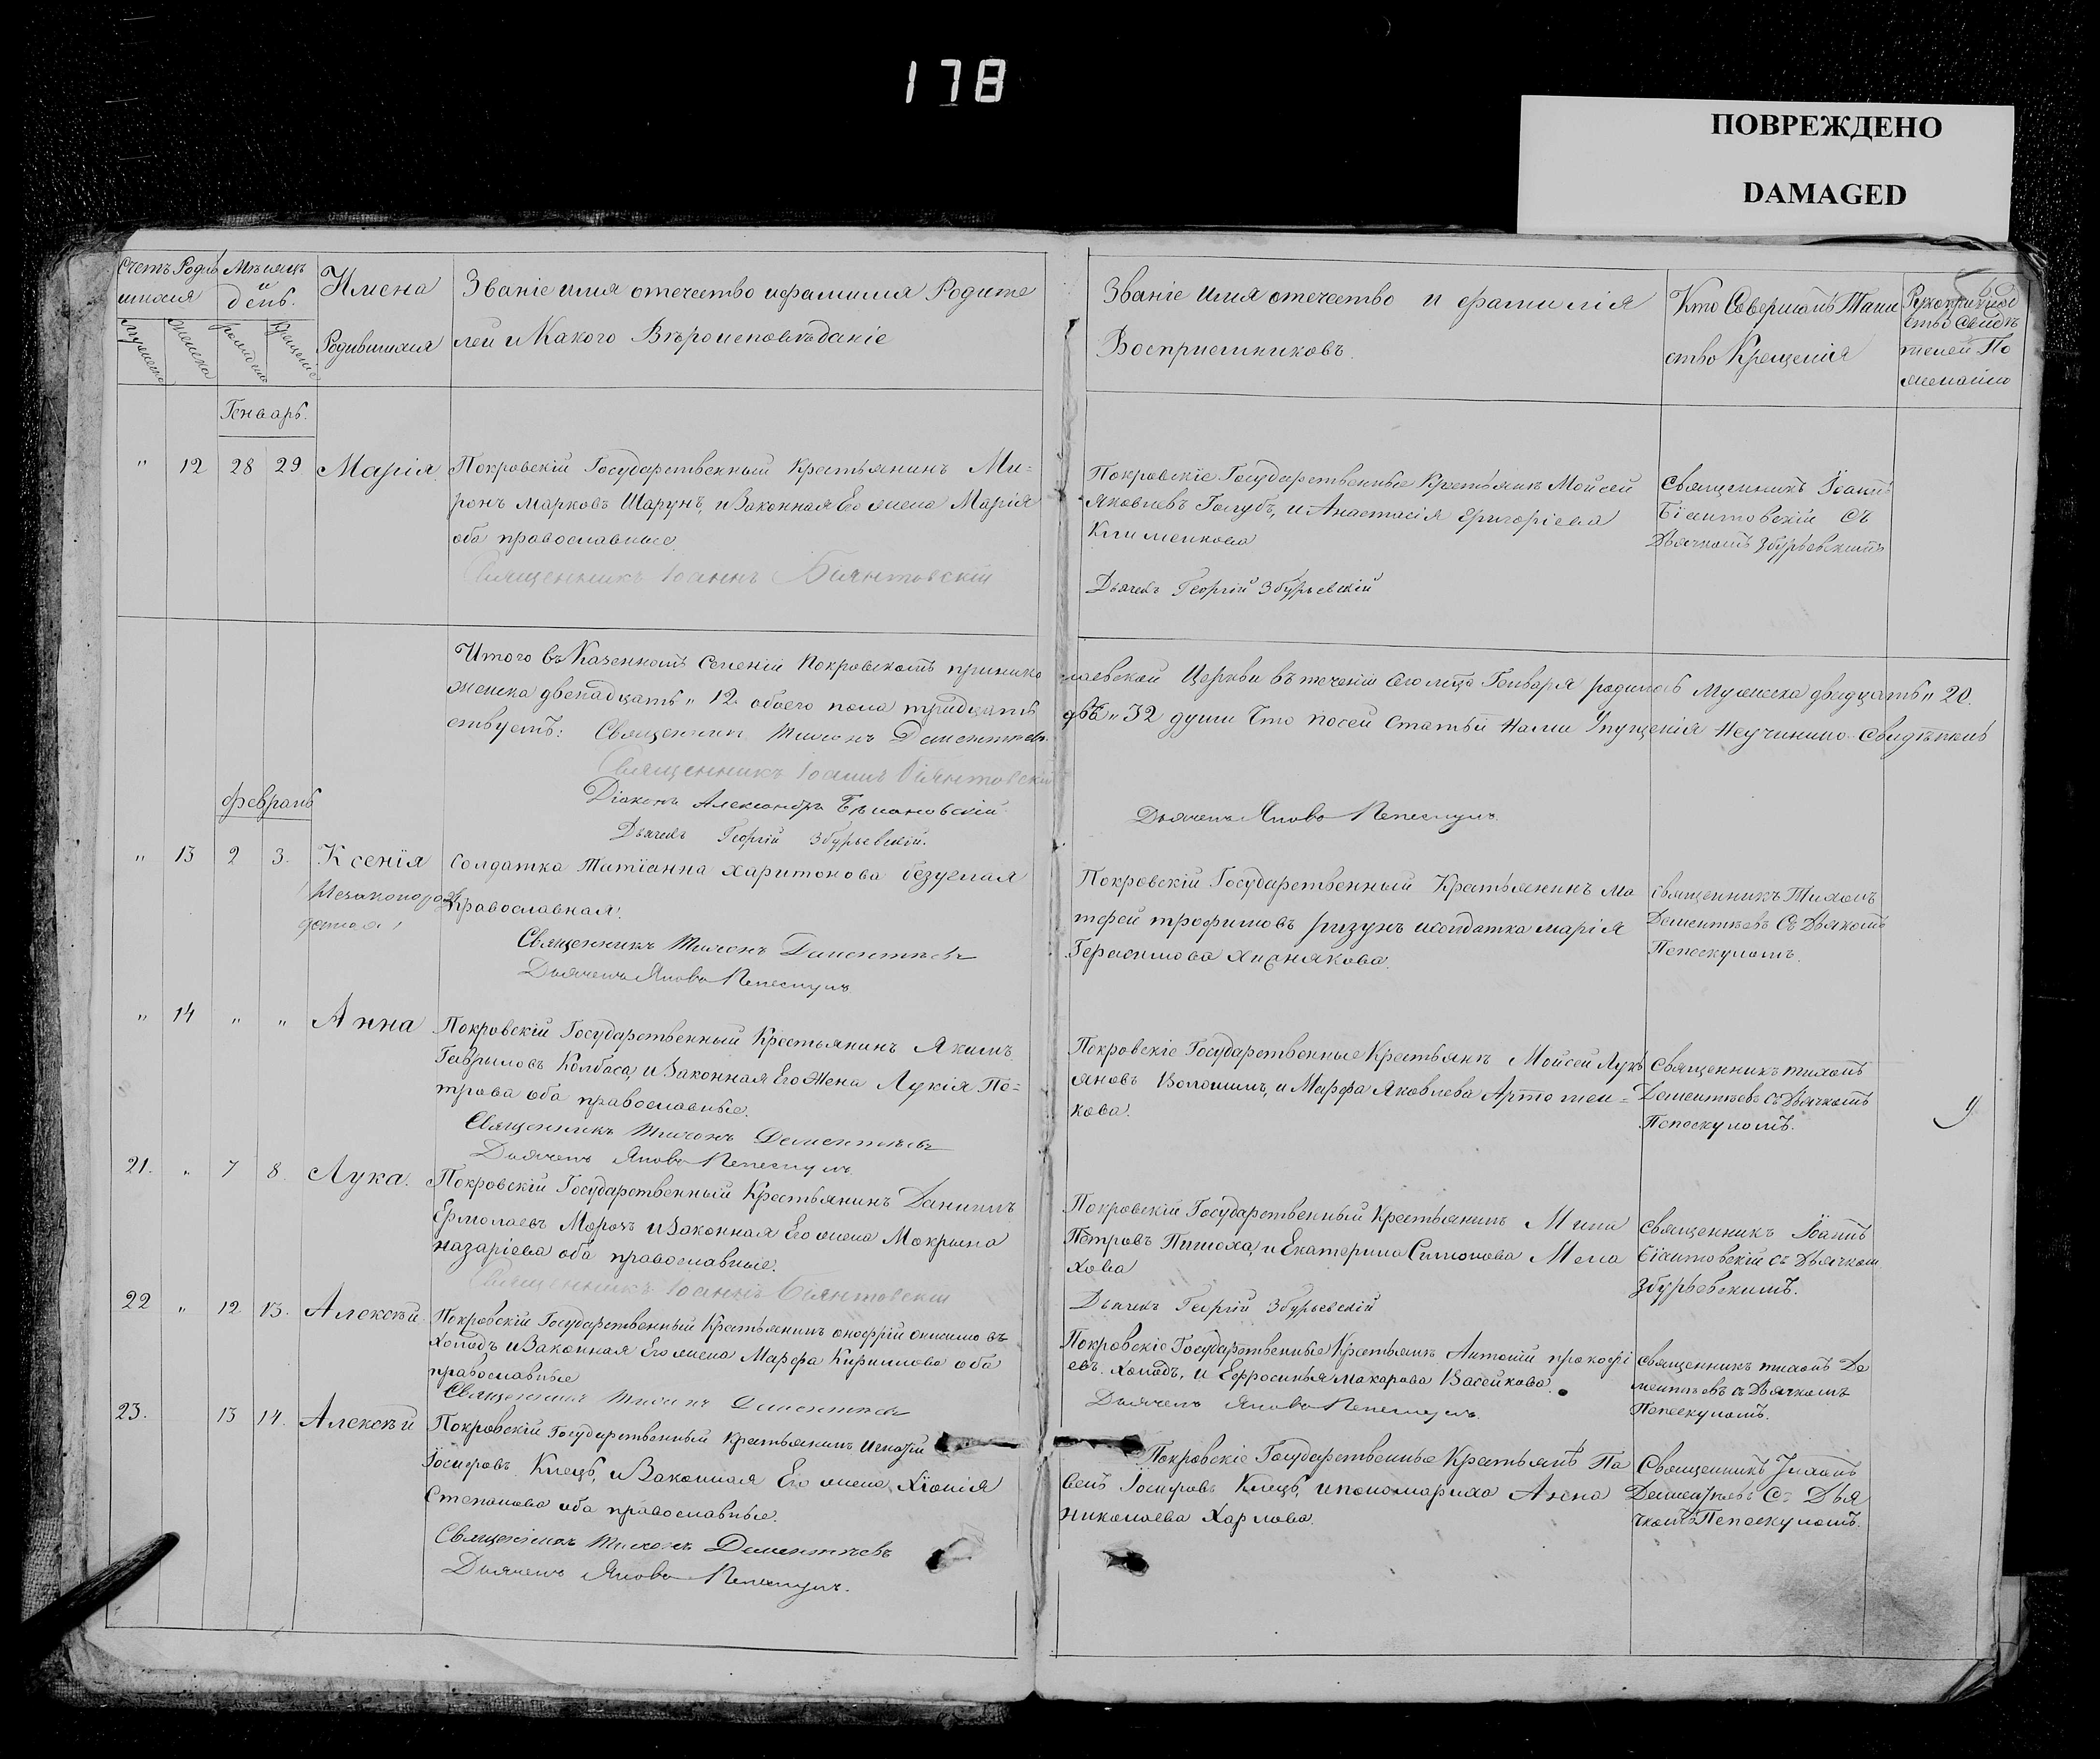 178
ПОВРЕЖДЕНО
DAMAGED
Счетъ Роди
вшихся
Мѣсяцъ
и
день.
Имена
Родившихся
Званіе имя отечество и фамилія Родите
лей и Какого Вѣроисповѣданіе
мужеска
женска
рожденія
крещенія
Званіе имя отечество и фамилія
Воспріемниковъ.
Кто Совершалъ Таин
ство Крещенія
Рукоприклад
ство Свидѣ
телей По
желанію
Генварь.
" 12 28 29 Марія
Покровскій Государственный Крестьянинъ Ми=
ронъ Марковъ Шарунъ, и Законная Его жена Марія
оба православные
Священникъ Іоаннъ Біянтовскій
Покровскіе Государственные Крестьяне Мойсей
Яковлевъ Голубъ, и Анастасія Григоріева
Клименкова
Дьячекъ Георгій Збурьевскій
Священникъ Іоаннъ
Біантовскій Съ
Дьячкомъ Збурьевскимъ
Итого въ Казенномъ Селеніи Покровскомъ при Нико
лаевской Церкви въ теченіи сего мѣсяца Генваря родилось Мужеска двадцать „ 20.
женска двенадцать „ 12 обоего пола тридцать
двѣ „ 32 души Что по сей Статьи Нами Упущенія Неучинено Свидѣтель
ствуемъ: Священникъ Тихонъ Дементьевъ
Священникъ Іоаннъ Біянтовскій
Діаконъ Александръ Бѣлановскій
Дьячекъ Георгій Збурьевскій.
Дьячекъ Яковъ Пепескулъ
Февраль
" 13 2 3. Ксенія
Незаконорож
денная
Солдатка Татіанна Харитонова безуглая
Православная.
Священникъ Тихонъ Дементьевъ
Дьячекъ Яковъ Пепескулъ
Покровскій Государственный Крестьянинъ Ма
тфей трофимовъ ризунъ и солдатка марія
Герасимова Хижнякова.
Священникъ Тихонъ
Дементьевъ Съ Дьякомъ
Пепескуломъ.
" 14 " " Анна
Покровскій Государственный Крестьянинъ Якимъ
Гаврыловъ Колбаса, и Законная Его Жена Лукія Пе=
трова оба православные.
Священникъ Тихонъ Дементьевъ
Дьячекъ Яковъ Пепескулъ
Покровскіе Государственные Крестьяне Мойсей Лукь
яновъ Волошинъ, и Марфа Яковлева Артемен=
кова.
Священникъ тихонъ
Дементьевъ съ Дьячкомъ
Пепескуломъ.
21. " 7 8. Лука.
Покровскій Государственный Крестьянинъ Даниилъ
Ермолаевъ Морозъ и Законная Его жена Мокрына
назаріева оба православные.
Священникъ Іоаннъ Біянтовскій
Покровскій Государственный Крестьянинъ Мина
Петровъ и Екатерина Симонова
хова
Дьячекъ Георгій Збурьевскій
Священникъ Іоаннъ
Біантовскій съ Дьячком
Збурьевскимъ.
22 " 12. 13. Алексѣй
Покровскій Государственный Крестьянинъ онофрій онисимовъ
Холодъ и Законная Его жена Марфа Кириллова оба
православные
Священникъ Тихонъ Дементьевъ
Покровскіе Государственные Крестьяне Антоній прокофі
евъ Холодъ, и Ефросинья Макарова Васейкова.
Дьячекъ Яковъ Пепескулъ.
Священникъ тихонъ Де
ментьевъ съ Дьячкомъ
Пепескуломъ.
23. 13 14. Алексѣй
Покровскій Государственный Крестьянинъ Игнатій
Іосифовъ Клецъ, и Законная Его жена Хіонія
Степанова оба православные.
Священникъ Тихонъ Дементьевъ
Дьячекъ Яковъ Пепескулъ.
Покровскіе Государственные Крестьянъ Па
велъ Іосифовъ Клецъ, и пономариха Анна
Николаева Харлова.
Священникъ Тихонъ
Дементьевъ Съ Дья
чкомъ Пепескуломъ.